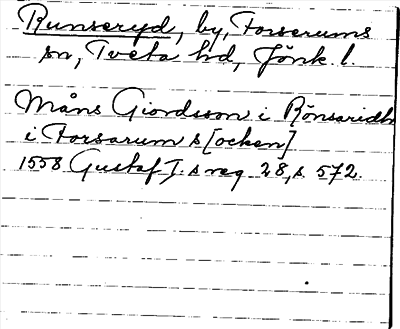 Runseryd, by, Forserums
sn, Tveta hd, Jönk. l.
Måns Giordsson i Rönsaridh
i Forsarum s[ocken]
1558 Gustaf I:s reg 28, s. 572.